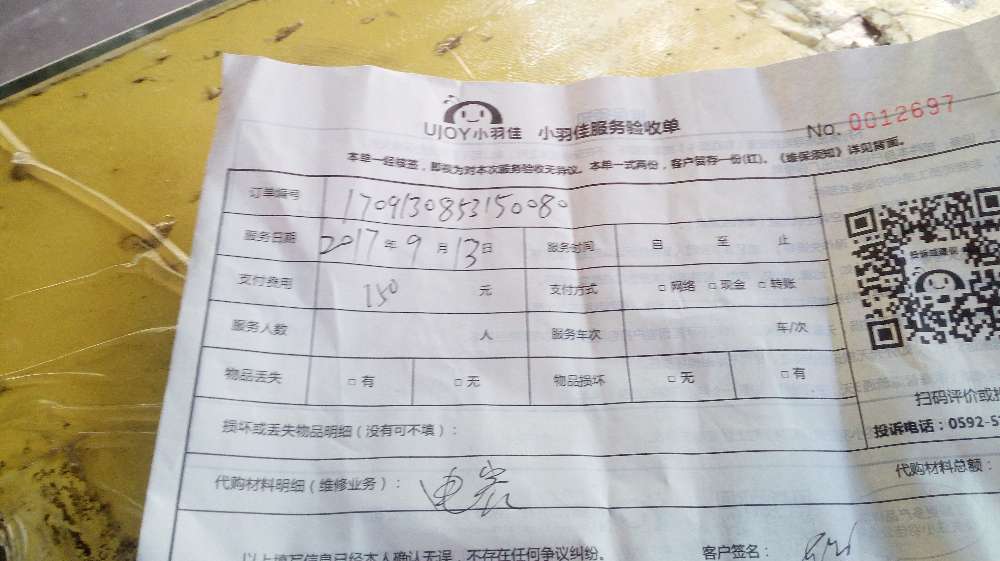 UJOY小羽佳 小羽佳服务验收单 No. 0012697
本单一经核签，即视为对本次服务验收无异议。本单一式两份，客户留存一份(红)。《维保须知》详见背面。
订单编号 170913085315080
服务日期 2017年9月13日 服务时间 自 至 止
支付费用 150 元 支付方式 □网络 □现金 □转账
服务人数 人 服务车次 车/次
物品丢失 □有 □无 物品损坏 □无 □有
扫码评价或投
损坏或丢失物品明细（没有可不填）：
投诉电话：0592-5
代购材料明细（维修业务）： 电容
代购材料总额：
以上填写信息已经本人确认无误，不存在任何争议纠纷。 客户签名：